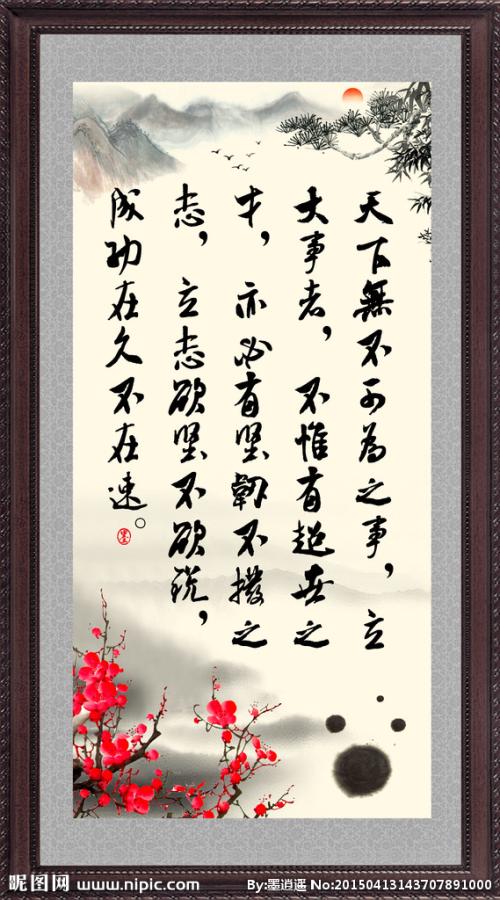 天下無不可為之事，立
大事者，不惟有超世之
才，亦必有坚韧不撥之
志，立志欲坚不欲锐，
成功在久不在速。
昵图网 www.nipic.com By:墨逍遥 No:20150413143707891000